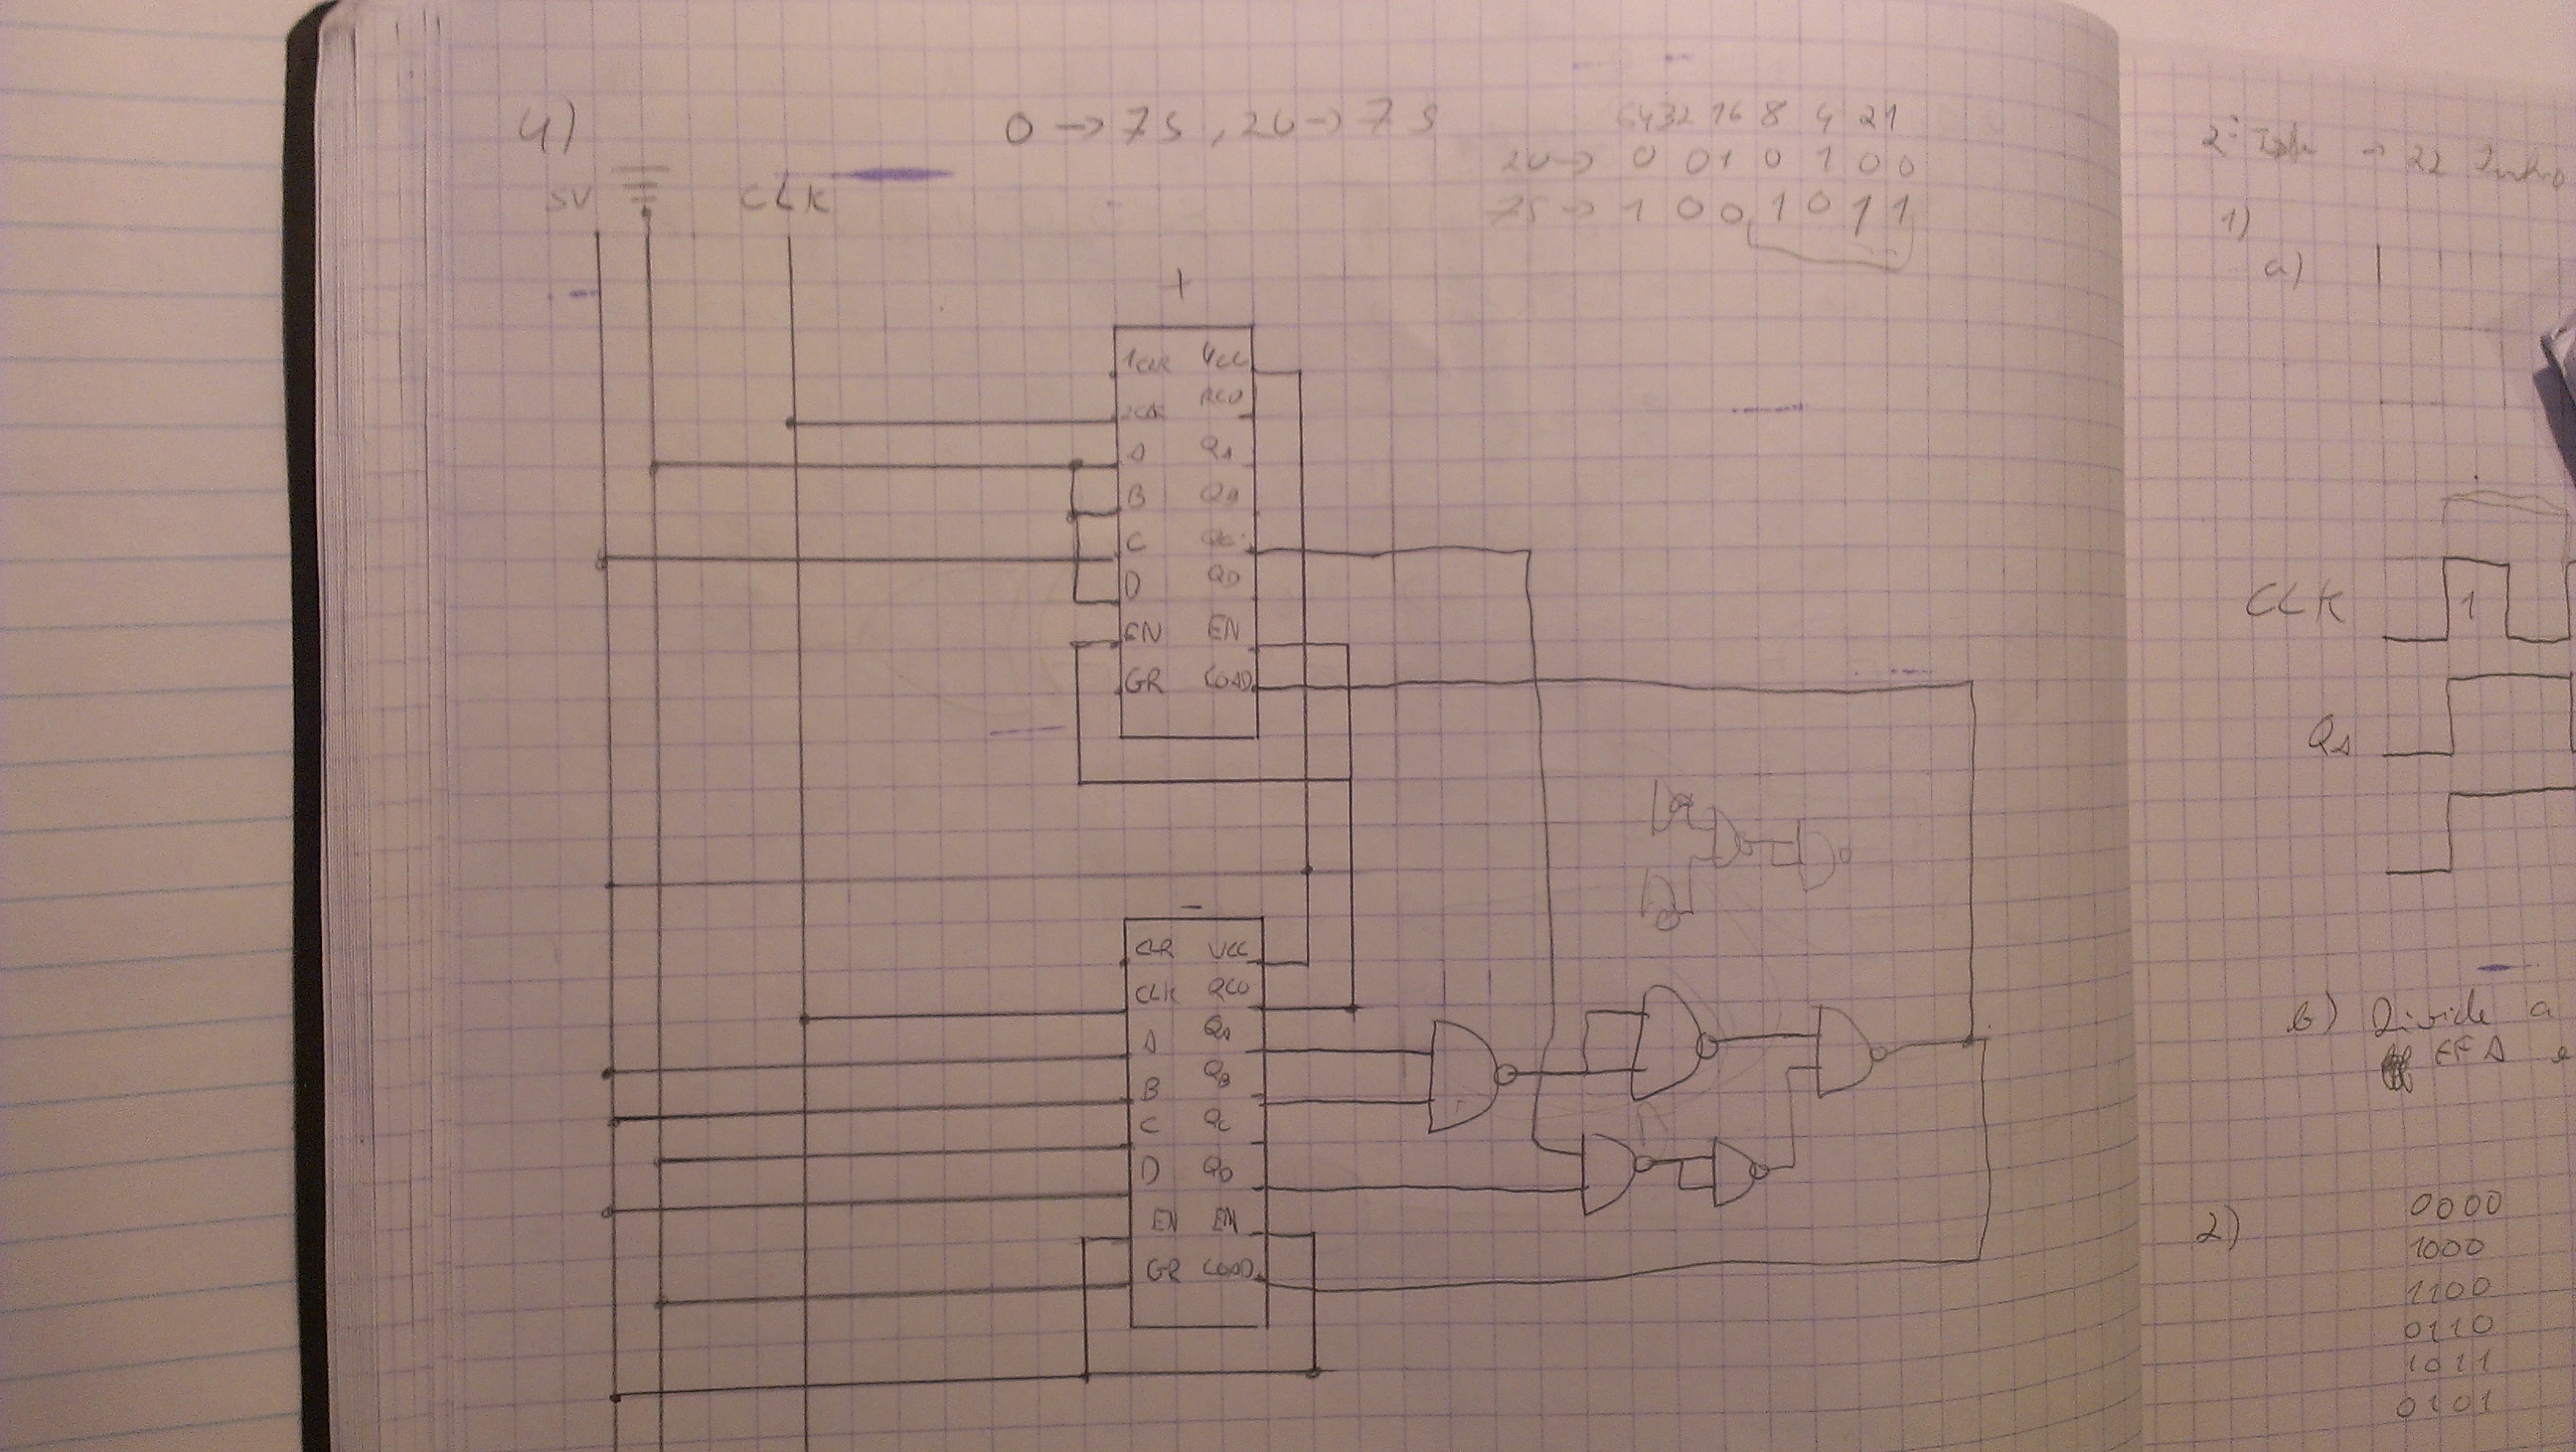 4) 0 → 75, 20 → 75
64 32 16 8 4 2 1
20 → 0 0 1 0 1 0 0
75 → 1 0 0 1 0 1 1
5V CLK
+
1CLR VCC
CLK RCO
A QA
B QB
C QC
D QD
EN EN
GR LOAD
-
CLR VCC
CLK RCO
A QA
B QB
C QC
D QD
EN EN
GR LOAD
22
1)
a)
CLK 1
QA
b) Divide a
EFA e
2) 0000
1000
1100
0110
1011
0101